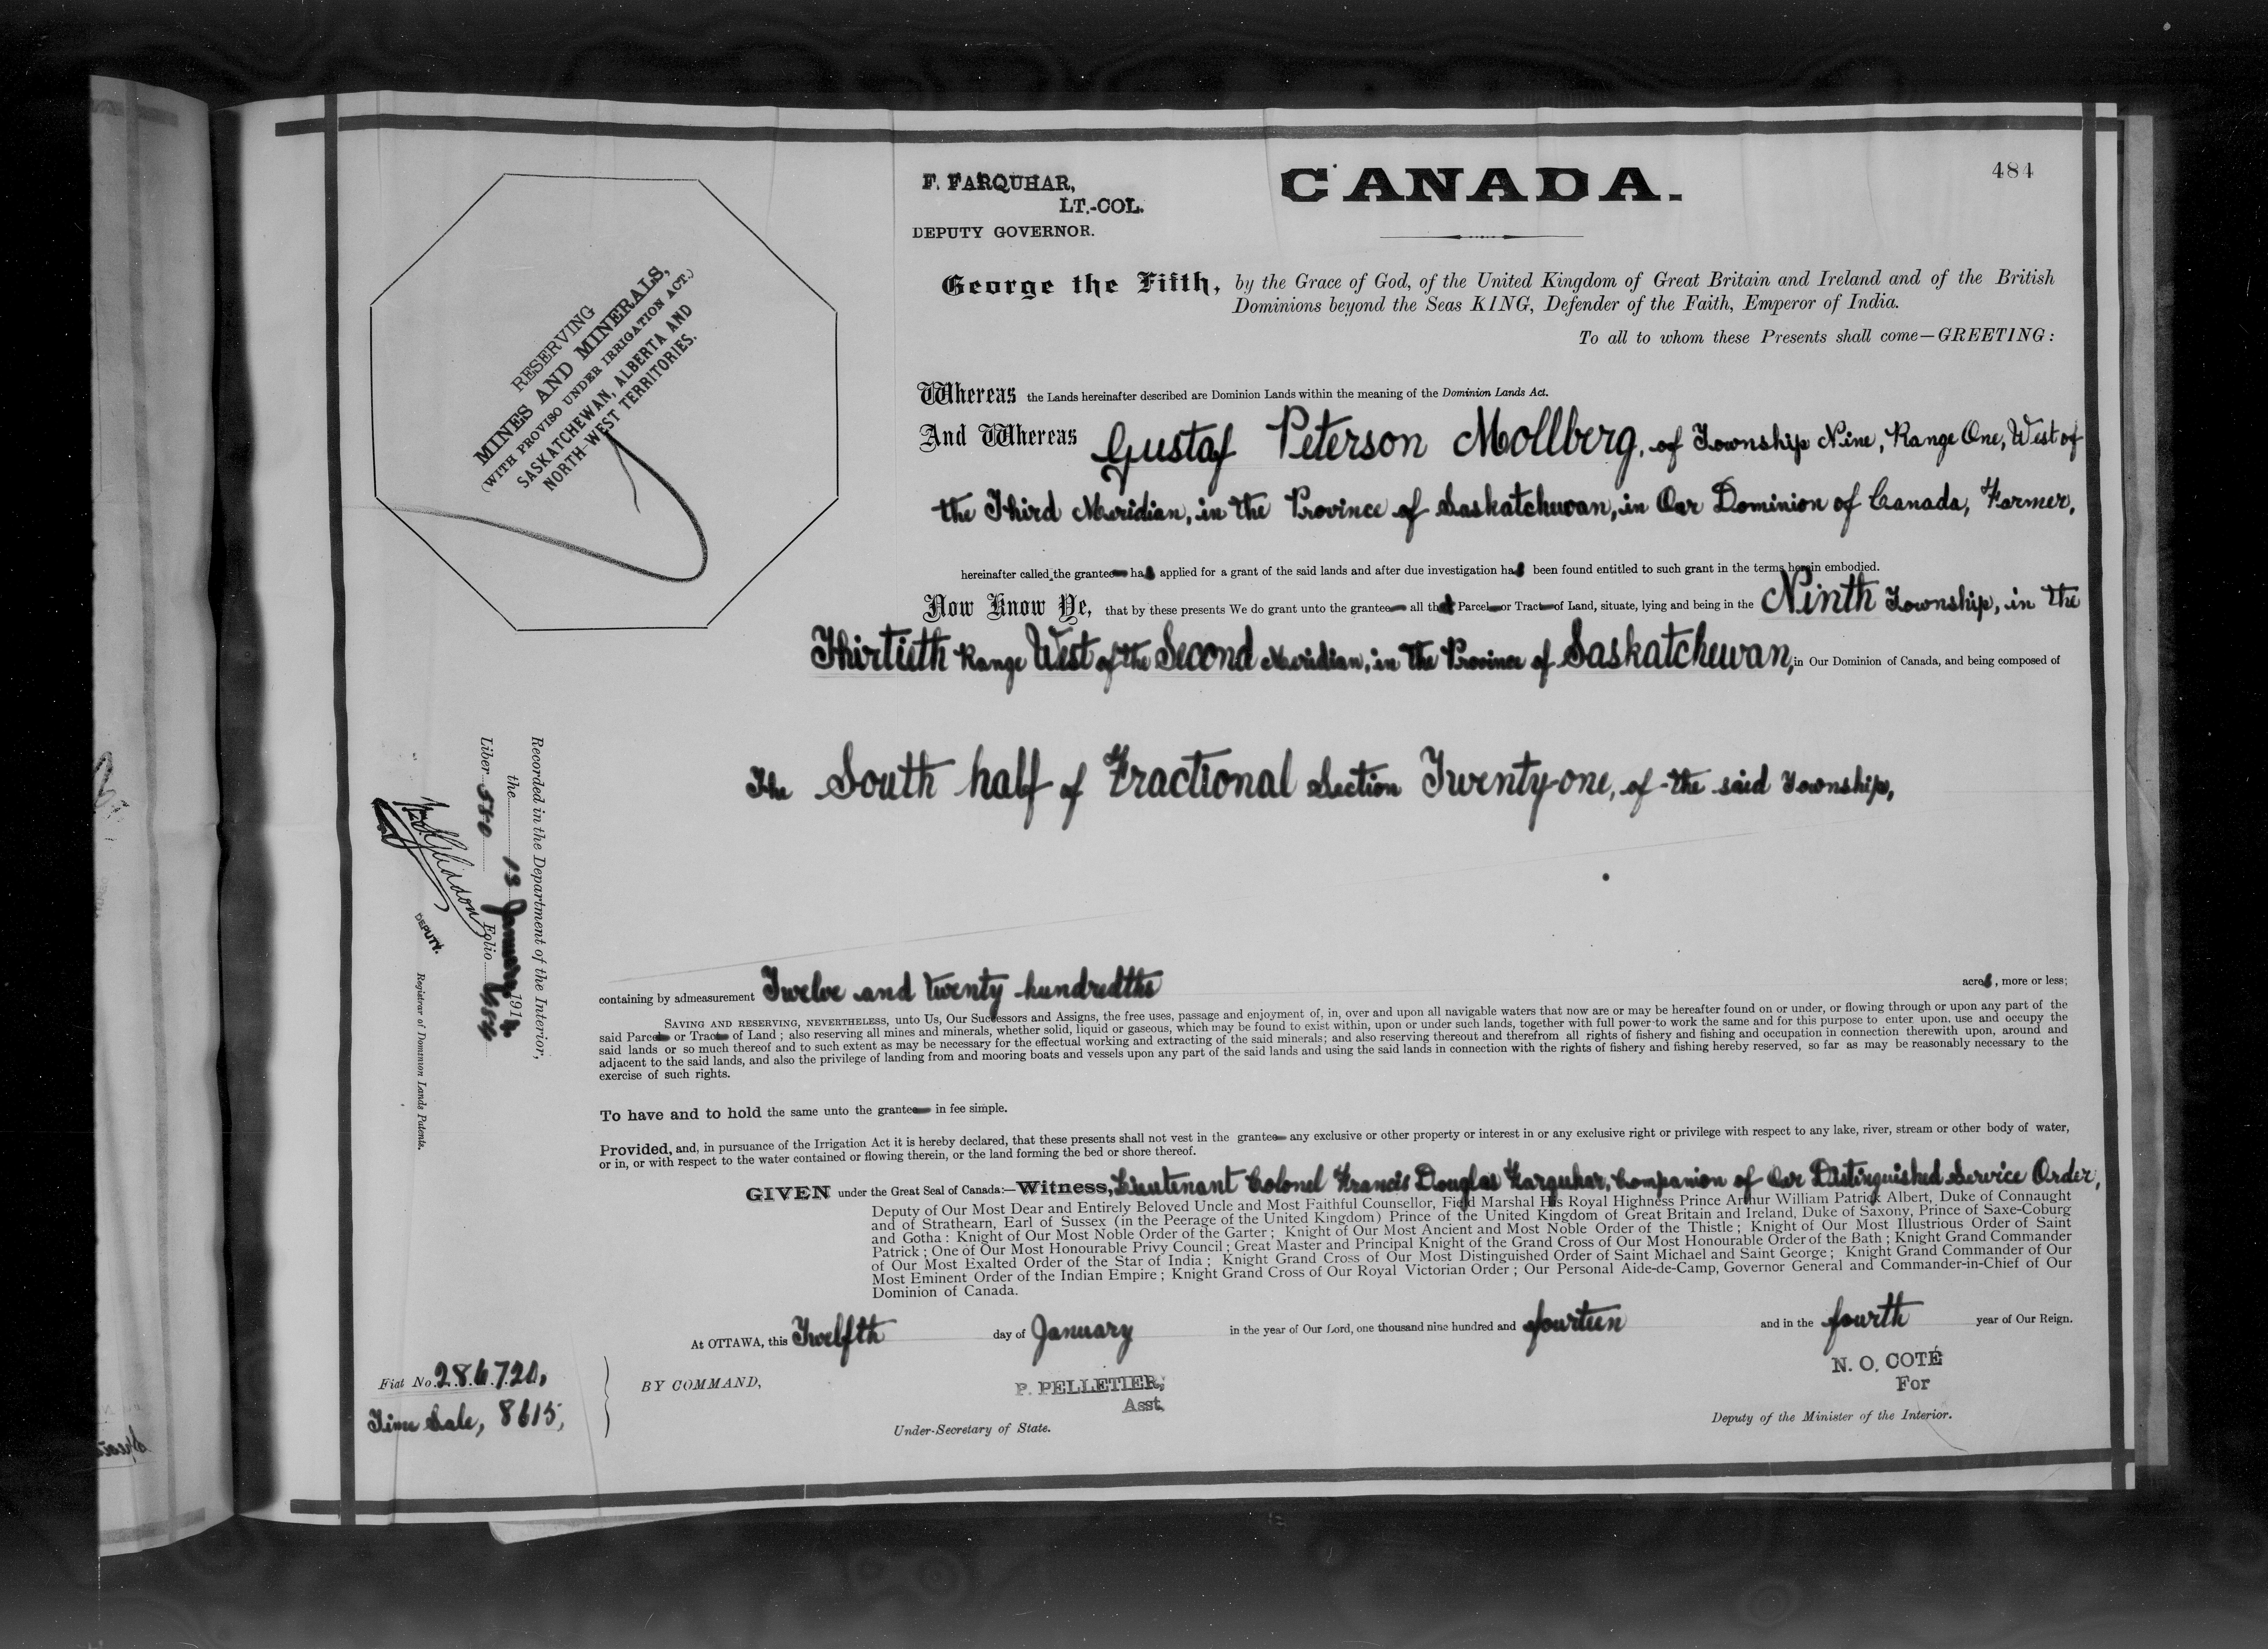 484
F. FARQUHAR,
LT.-COL.
DEPUTY GOVERNOR.
CANADA.
George the Fifth, by the Grace of God, of the United Kingdom of Great Britain and Ireland and of the British
Dominions beyond the Seas KING, Defender of the Faith, Emperor of India.
To all to whom these Presents shall come—GREETING:
RESERVING
MINES AND MINERALS,
(WITH PROVISO UNDER IRRIGATION ACT.)
SASKATCHEWAN, ALBERTA AND
NORTH-WEST TERRITORIES.
Whereas the Lands hereinafter described are Dominion Lands within the meaning of the Dominion Lands Act.
And Whereas Gustaf Peterson Mollberg, of Township Nine, Range One, West of
the Third Meridian, in the Province of Saskatchewan, in Our Dominion of Canada, Farmer,
hereinafter called the grantee has applied for a grant of the said lands and after due investigation has been found entitled to such grant in the terms herein embodied.
Now Know Ye, that by these presents We do grant unto the grantee all that Parcel or Tract of Land, situate, lying and being in the Ninth Township, in the
Thirtieth Range West of the Second Meridian, in the Province of Saskatchewan, in Our Dominion of Canada, and being composed of
The South half of Fractional Section Twenty-one, of the said Township,
Recorded in the Department of the Interior,
the 13 January 1914
Liber 550 Folio 484
DEPUTY.
Registrar of Dominion Lands Patents.
containing by admeasurement Twelve and twenty hundredths acres, more or less;
SAVING AND RESERVING, NEVERTHELESS, unto Us, Our Successors and Assigns, the free uses, passage and enjoyment of, in, over and upon all navigable waters that now are or may be hereafter found on or under, or flowing through or upon any part of the
said Parcel or Tract of Land; also reserving all mines and minerals, whether solid, liquid or gaseous, which may be found to exist within, upon or under such lands, together with full power to work the same and for this purpose to enter upon, use and occupy the
said lands or so much thereof and to such extent as may be necessary for the effectual working and extracting of the said minerals; and also reserving thereout and therefrom all rights of fishery and fishing and occupation in connection therewith upon, around and
adjacent to the said lands, and also the privilege of landing from and mooring boats and vessels upon any part of the said lands and using the said lands in connection with the rights of fishery and fishing hereby reserved, so far as may be reasonably necessary to the
exercise of such rights.
To have and to hold the same unto the grantee in fee simple.
Provided, and, in pursuance of the Irrigation Act it is hereby declared, that these presents shall not vest in the grantee any exclusive or other property or interest in or any exclusive right or privilege with respect to any lake, river, stream or other body of water,
or in, or with respect to the water contained or flowing therein, or the land forming the bed or shore thereof.
GIVEN under the Great Seal of Canada:—Witness, Lieutenant Colonel Francis Douglas Farquhar, Companion of Our Distinguished Service Order,
Deputy of Our Most Dear and Entirely Beloved Uncle and Most Faithful Counsellor, Field Marshal His Royal Highness Prince Arthur William Patrick Albert, Duke of Connaught
and of Strathearn, Earl of Sussex (in the Peerage of the United Kingdom) Prince of the United Kingdom of Great Britain and Ireland, Duke of Saxony, Prince of Saxe-Coburg
and Gotha: Knight of Our Most Noble Order of the Garter; Knight of Our Most Ancient and Most Noble Order of the Thistle; Knight of Our Most Illustrious Order of Saint
Patrick; One of Our Most Honourable Privy Council; Great Master and Principal Knight of the Grand Cross of Our Most Honourable Order of the Bath; Knight Grand Commander
of Our Most Exalted Order of the Star of India; Knight Grand Cross of Our Most Distinguished Order of Saint Michael and Saint George; Knight Grand Commander of Our
Most Eminent Order of the Indian Empire; Knight Grand Cross of Our Royal Victorian Order; Our Personal Aide-de-Camp, Governor General and Commander-in-Chief of Our
Dominion of Canada.
At OTTAWA, this Twelfth day of January in the year of Our Lord, one thousand nine hundred and fourteen and in the fourth year of Our Reign.
Fiat No. 286720,
Time Sale, 8615,
BY COMMAND,
P. PELLETIER,
Asst.
Under-Secretary of State.
N. O. COTÉ
For
Deputy of the Minister of the Interior.